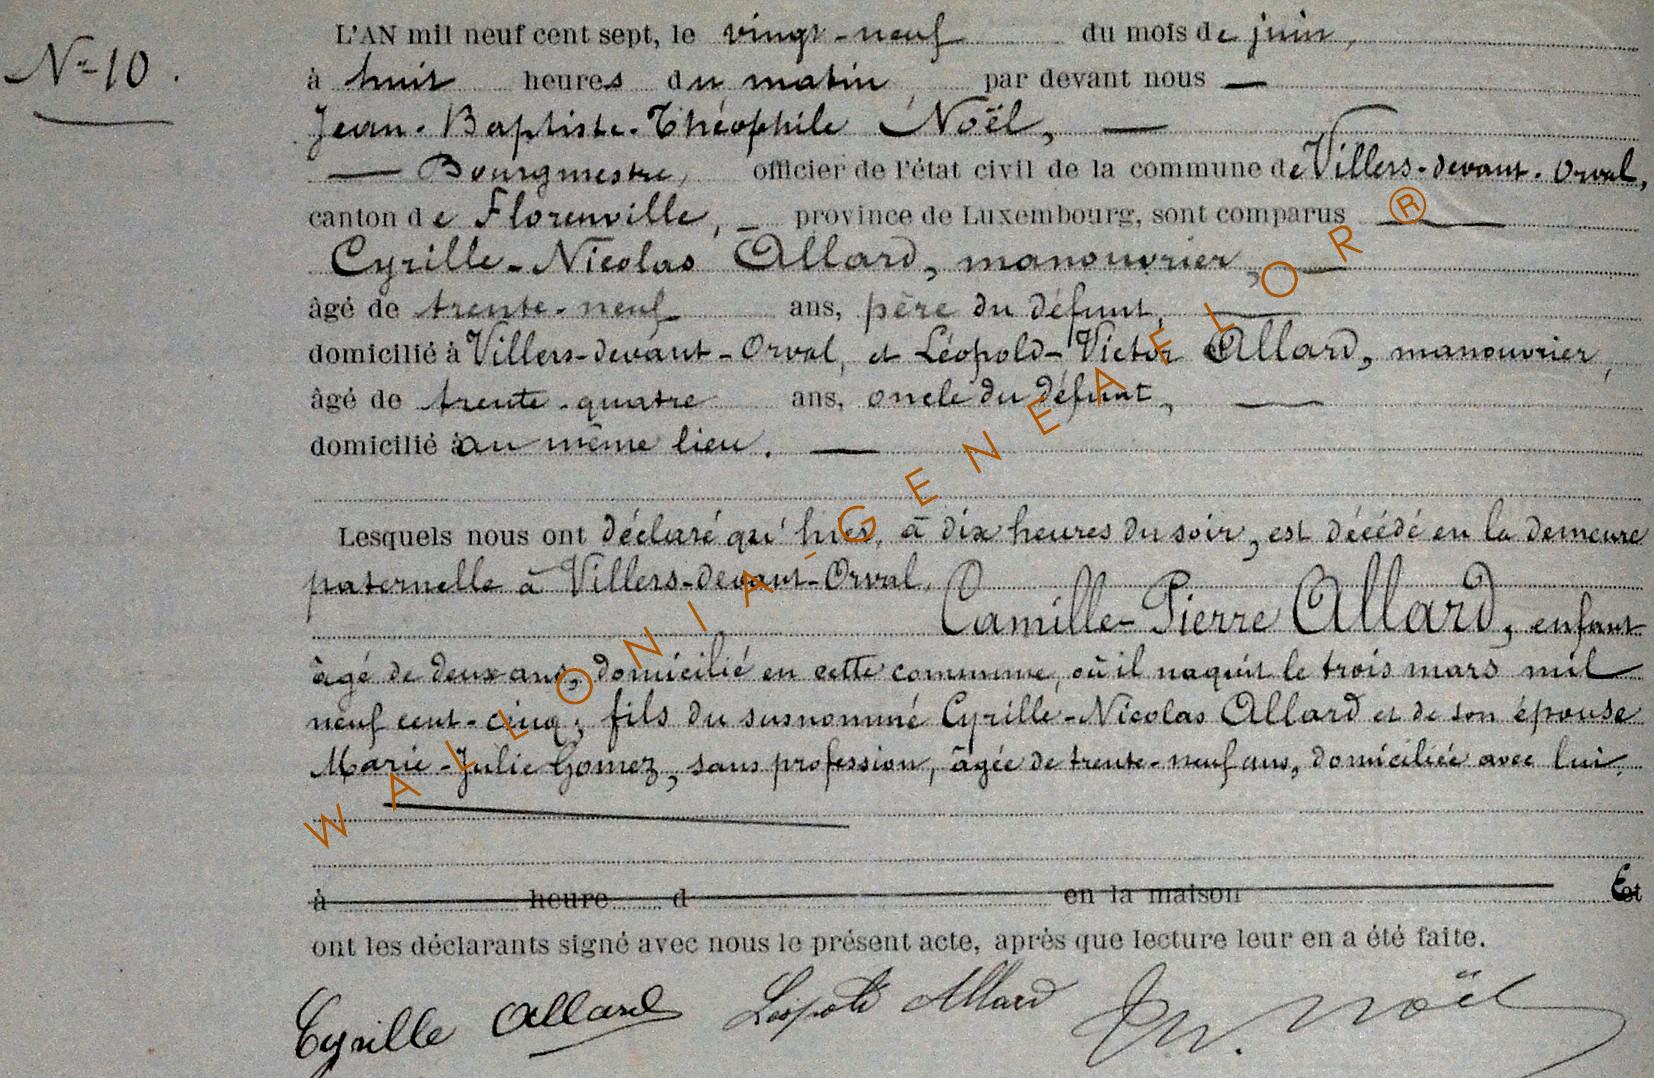 Nº 10.
L'AN mil neuf cent sept, le vingt-neuf du mois de juin,
à huit heures du matin, par devant nous —
Jean-Baptiste-Théophile Noël, —
— Bourgmestre, officier de l'état civil de la commune de Villers-devant-Orval,
canton de Florenville, — province de Luxembourg, sont comparus —
Cyrille-Nicolas Allard, manouvrier, —
âgé de trente-neuf ans, père du défunt, —
domicilié à Villers-devant-Orval, et Léopold-Victor Allard, manouvrier,
âgé de trente-quatre ans, oncle du défunt, —
domicilié à au même lieu. —
Lesquels nous ont déclaré qu'hier, à dix heures du soir, est décédé en la demeure
paternelle à Villers-devant-Orval,
Camille-Pierre Allard, enfant
âgé de deux ans, domicilié en cette commune, où il naquit le trois mars mil
neuf cent-cinq; fils du susnommé Cyrille-Nicolas Allard et de son épouse
Marie-Julie Gomez, sans profession, âgée de trente-neuf ans, domiciliée avec lui.
à heure d en la maison Et
ont les déclarants signé avec nous le présent acte, après que lecture leur en a été faite.
Cyrille Allard Léopold Allard Th. Noël
WALLONIA-GENEAFLOR®